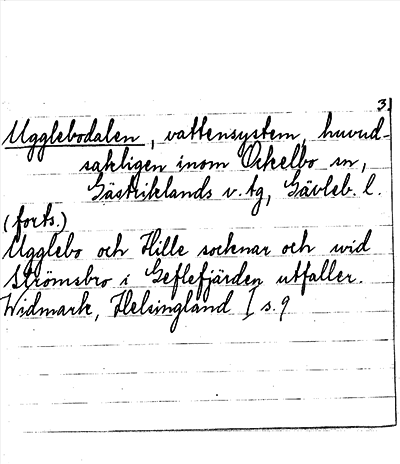 3.
Ugglebodalen, vattensystem, huvud-
sakligen inom Ockelbo sn,
Gästriklands v. tg, Gävleb. l.
(forts.)
Ugglebo och Hille socknar och wid
Strömsbro i Geflefjärden utfaller.
Widmark, Helsingland I s. 9